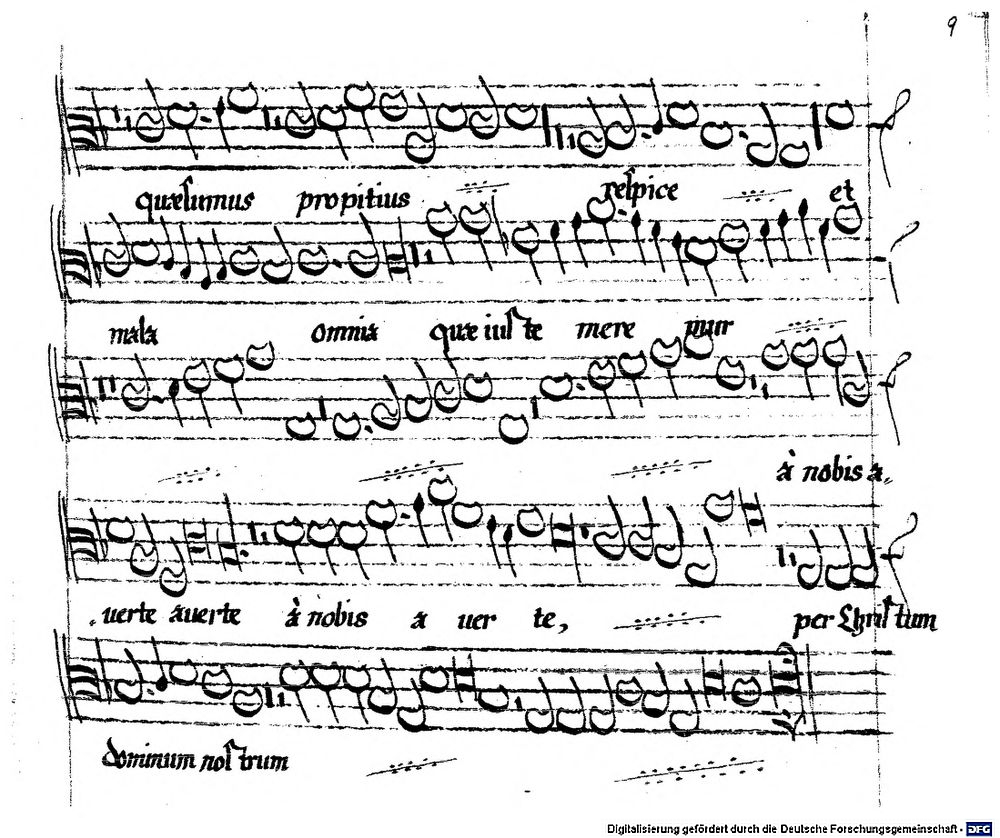 9
quæsumus propitius respice et
mala omnia quæ iuste mere mur
à nobis a,
,uerte auerte à nobis a uer te, per Christum
dominum nostrum
Digitalisierung gefördert durch die Deutsche Forschungsgemeinschaft - DFG